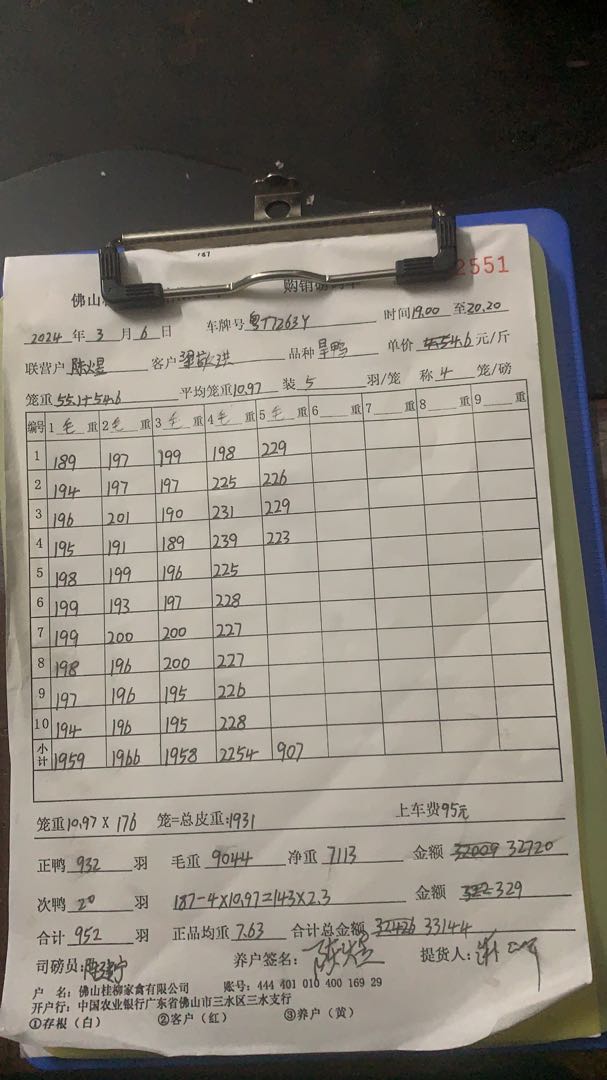 187
2551
佛山
购销
2024 年 3 月 6 日 车牌号 粤T7263Y 时间19.00 至20.20
联营户 陈煜 客户 品种 旱鸭 单价 4.6 元/斤
笼重 55.1+54.6 平均笼重10.97 装 5 羽/笼 称 4 笼/磅
编号 1 毛 重 2 毛 重 3 毛 重 4 毛 重 5 毛 重 6 重 7 重 8 重 9 重
1 189 197 199 198 229
2 194 197 197 225 226
3 196 201 190 231 229
4 195 191 189 239 223
5 198 199 196 225
6 199 193 197 228
7 199 200 200 227
8 198 196 200 227
9 197 196 195 226
10 194 196 195 228
小计 1959 1966 1958 2254 907
笼重10.97 X 176 笼=总皮重:1931 上车费95元
正鸭 932 羽 毛重 9044 净重 7113 金额 32009 32720
次鸭 20 羽 187-4X10.97=143X2.3 金额 322 329
合计 952 羽 正品均重 7.63 合计总金额 32426 33144
司磅员: 养户签名: 陈煜 提货人:
户 名: 佛山桂柳家禽有限公司 账号: 444 401 010 400 169 29
开户行: 中国农业银行广东省佛山市三水区三水支行
①存根（白） ②客户（红） ③养户（黄）